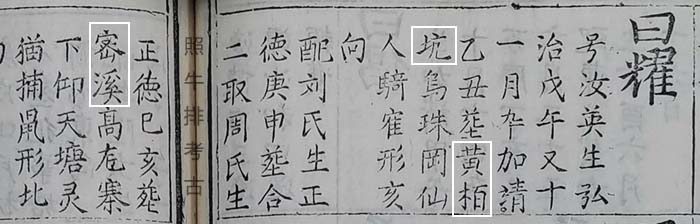 曰耀
号汝英生弘
治戊午又十
一月卆加請
乙丑塟黄栢
坑烏珠岡仙
人騎寉形亥
向
配刘氏生正
德庚申塟合
二取周氏生
照牛排考古
正德巳亥塟
密溪髙寨
下仰天塘灵
猶捕鼠形北